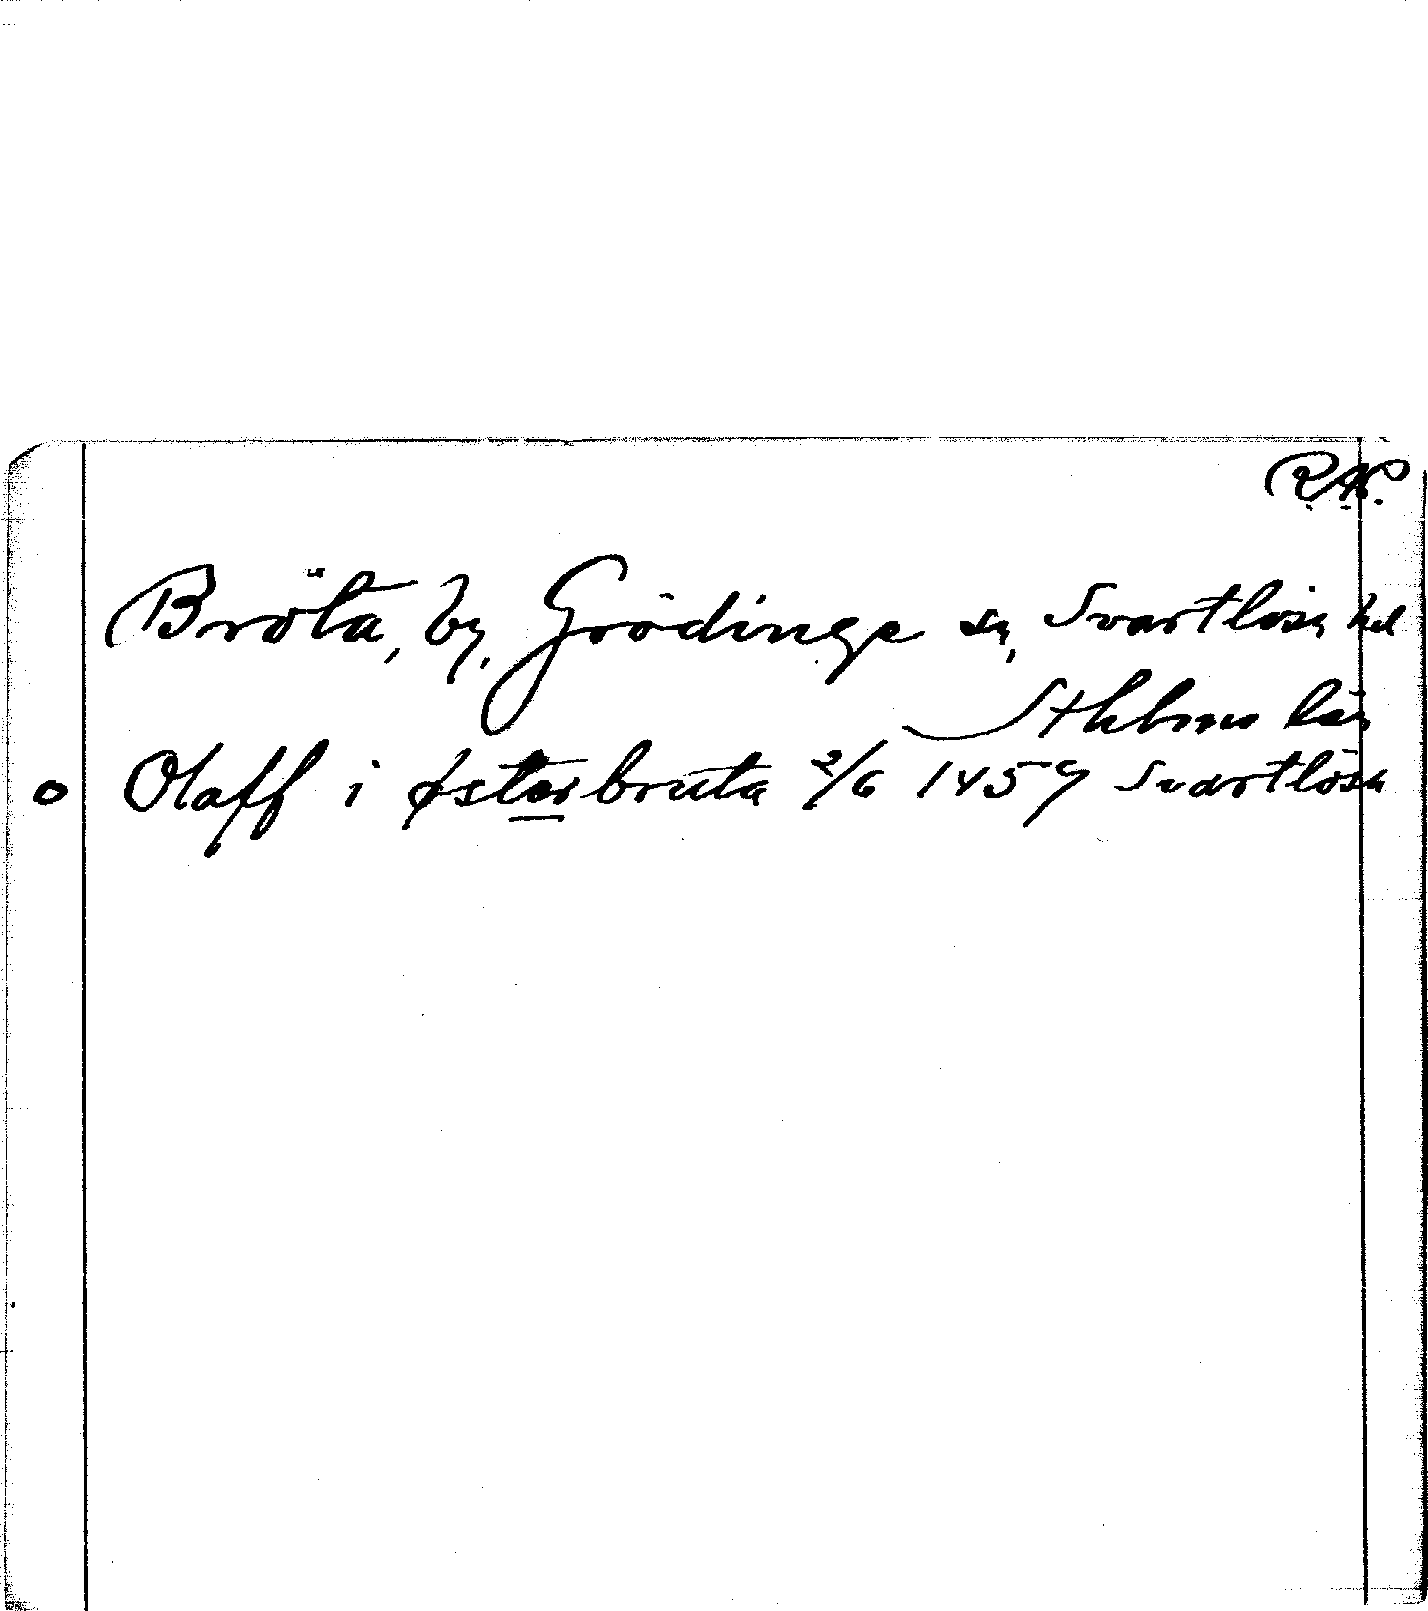 R.A.P.
Bröta, by, Grödinge sn, Svartlösa hd
Sthlms län
o Olaff i østerbruta 2/6 1459 Svartlösa